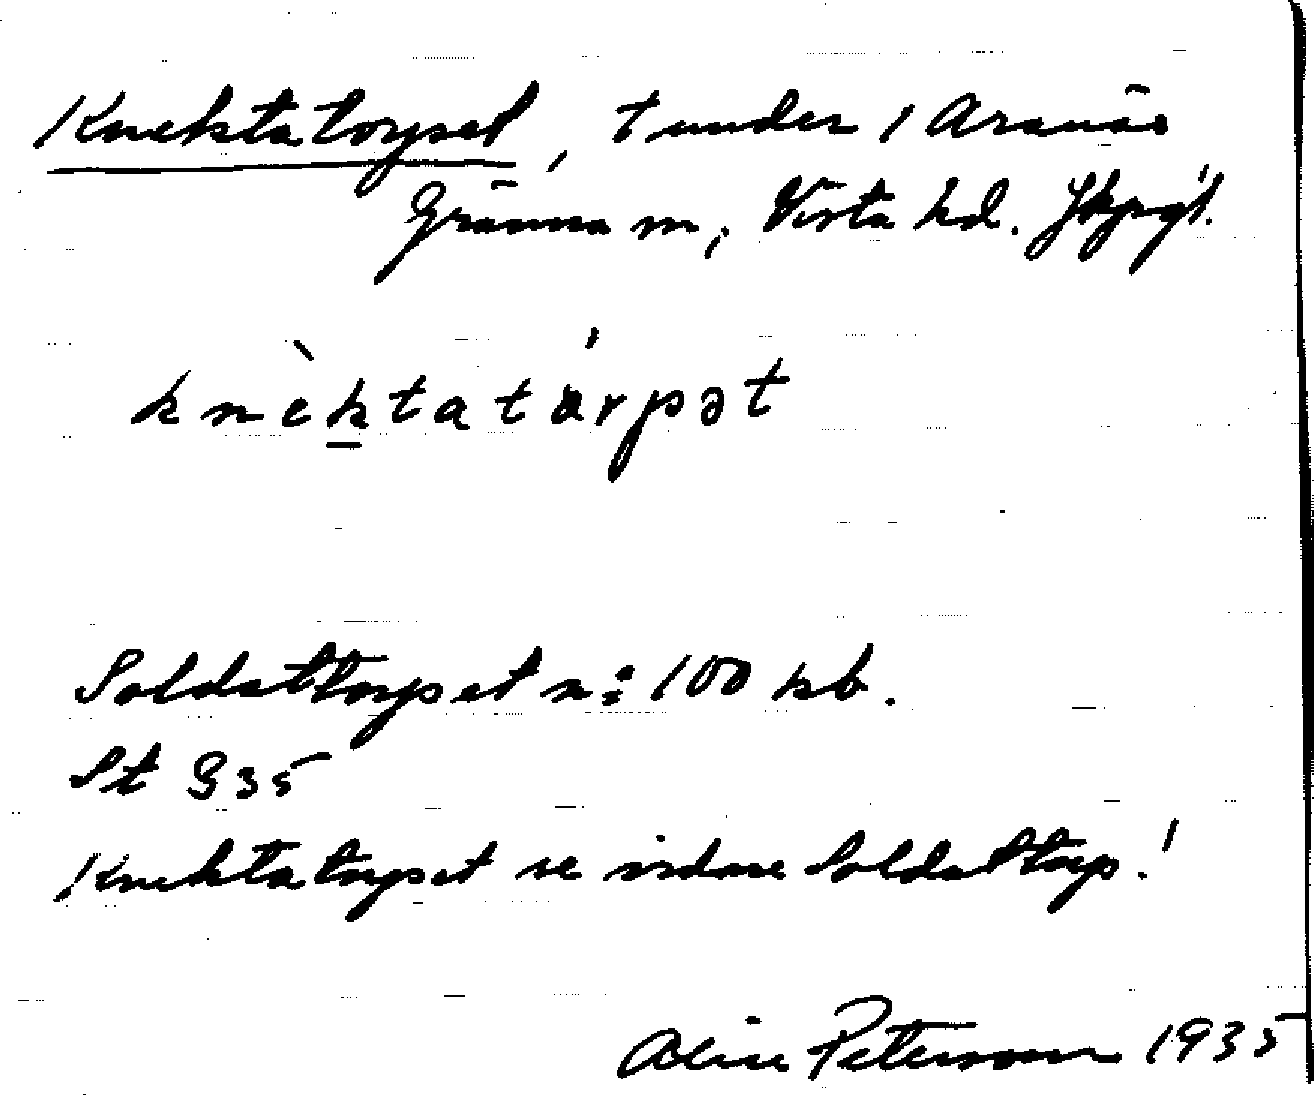 Knektatorpet, t under / Aranäs
Gränna m, Vista hd. Jkpgs l.
knèktatár̀pət
Soldattorpet n: 100 kb.
St 935
Knektatorpet se vidare Soldattorp!
Alice Petersson 1935